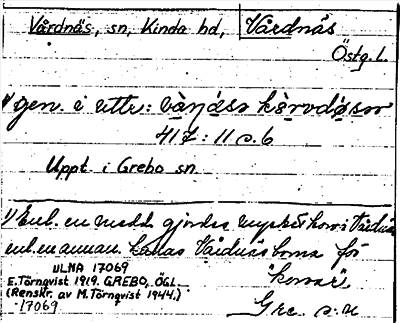 Vårdnäs, sn, Kinda hd, Vårdnäs
Östg. L.
1) gen. i uttr.:
417 : 11 s. 6
Uppt. i Grebo sn
1) Enl. en medd. gjordes mycket korv i Vårdnäs
enl. en annan kallas Vårdnäsborna för
"korvar"
ULMA 17069
E. Törnqvist 1919. GREBO, ÖGL.
(Renskr. av M. Törnqvist 1944.)
17069